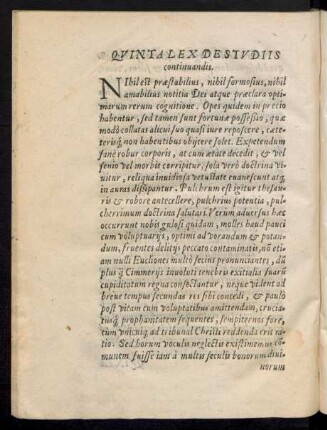 QVINTA LEX DE STVDIIS
continuandis.
NIhil est præstabilius, nihil formosius, nihil
amabilius notitia Dei atque præclara opti
marum rerum cognitione. Opes quidem in precio
habentur, sed tamen sunt fortunæ possessio, quæ
modò collatas alicui suo quasi iure reposcere, cæte-
risq́; non habentibus obijcere solet. Expetendum
sanè robur corporis, at cum ætate decedit, & vel
senio vel morbo corripitur, sola verò doctrina vi
uitur, reliqua inuidiosa vetustate euanescunt atq;
in auras dissipantur. Pulchrum est igitur thesau-
ris & robore antecellere, pulchrius potentia, pul-
cherrimum doctrina salutari. Verum aduersus hæc
occurrunt nobis gulosi quidam, molles haud pauci
cum voluptuarijs, optimi ad vorandum & potan-
dum, fruentes delitijs peccato contaminatis, nõ eti-
am nulli Eucliones multò secius pronunciantes, dũ
plus q̃ Cimmerijs inuoluti tenebris exitialia suarũ
cupiditatum regna consectantur, neque vident ad
breue tempus secundas res sibi contedi, & paulò
post vitam cum voluptatibus amittendam, crucia-
tusq́; prophanitatem sequentes, sempiternos fore,
cùm vnicuiq; ad tribunal Christi reddenda erit ra-
tio. Sed horum voculis neglectis existimemus cõ-
munem fuisse iam à multis seculis bonorum diui-
norum